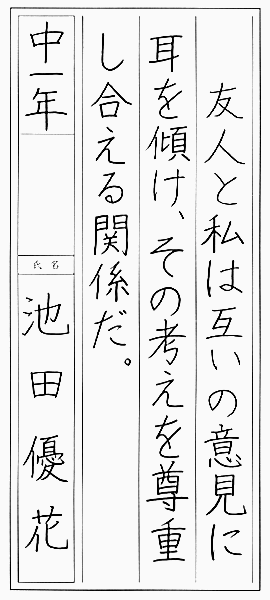 友人と私は互いの意見に
耳を傾け、その考えを尊重
し合える関係だ。
中一年
氏名
池田優花